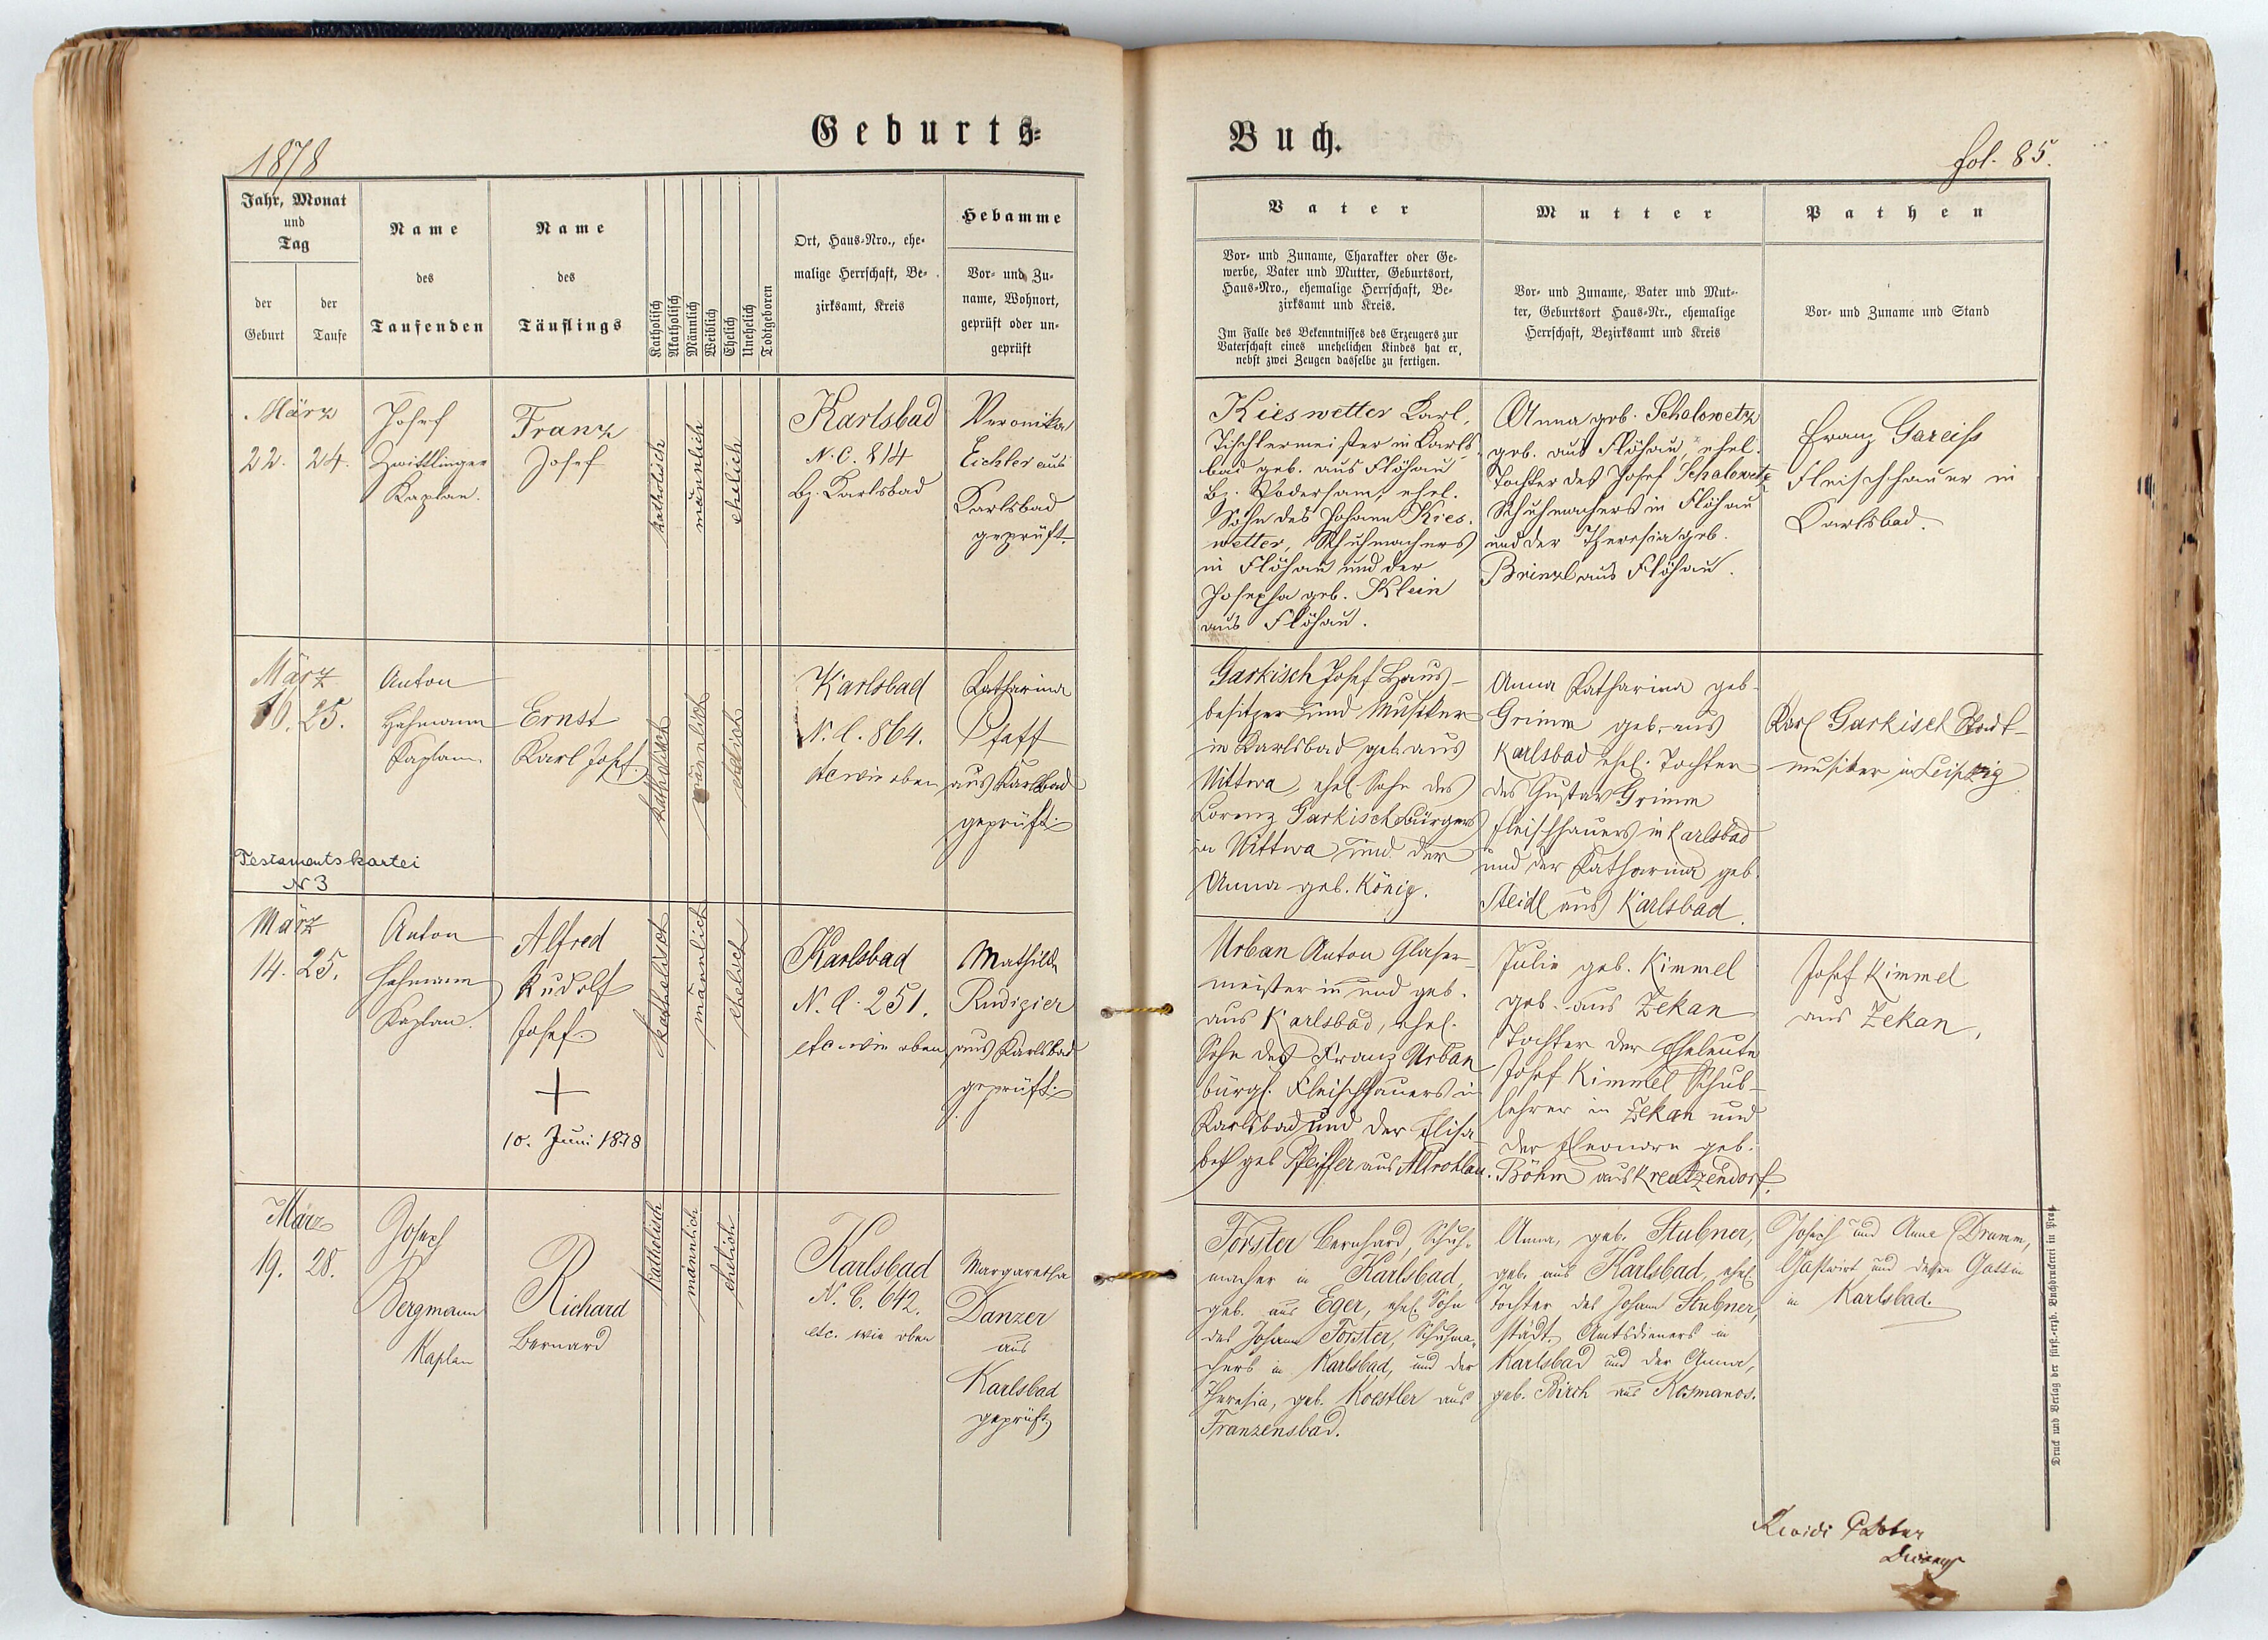 1878
Geburts-
Buch.
fol. 85.
Jahr, Monat
und
Tag
der
Geburt
der
Taufe
Name
des
Taufenden
Name
des
Täuflings
Katholisch
Akatholisch
Männlich
Weiblich
Ehelich
Unehelich
Todtgeboren
Ort, Haus-Nro., ehe-
malige Herrschaft, Be-
zirksamt, Kreis
Hebamme
Vor- und Zu-
name, Wohnort,
geprüft oder un-
geprüft
Vater
Vor- und Zuname, Charakter oder Ge-
werbe, Vater und Mutter, Geburtsort,
Haus-Nro., ehemalige Herrschaft, Be-
zirksamt und Kreis.
Im Falle des Bekenntnisses des Erzeugers zur
Vaterschaft eines unehelichen Kindes hat er,
nebst zwei Zeugen dasselbe zu fertigen.
Mutter
Vor- und Zuname, Vater und Mut-
ter, Geburtsort Haus-Nr., ehemalige
Herrschaft, Bezirksamt und Kreis
Pathen
Vor- und Zuname und Stand
März
22. 24.
Josef
Zwittlinger
Kaplan.
Franz
Josef
katholisch
männlich
ehelich
Karlsbad
N. C. 814
Bz. Karlsbad
Veronika
Eichler aus
Karlsbad
geprüft.
Kieswetter Karl,
Tischlermeister in Karls-
bad geb. aus Flöhau
Bz. Podersam, ehel.
Sohn des Johann Kies-
wetter, Schuhmachers
in Flöhau und der
Josepha geb. Klein
aus Flöhau.
Anna geb. Schalowetz
geb. aus Flöhau, ehel.
Tochter des Josef Schalowetz
Schuhmachers in Flöhau
und der Theresia geb.
Brinzl aus Flöhau.
Franz Gareiss
Fleischhauer in
Karlsbad.
März
16. 25.
Anton
Hahmann
Kaplan
Ernst
Karl Josef.
katholisch
männlich
ehelich
Karlsbad
N. C. 864.
etc wie oben
Katharina
Pfaff
aus Karlsbad
geprüft.
Garkisch Josef Haus-
besitzer und Musiker
in Karlsbad geb. aus
Wittwa, ehel. Sohn des
Lorenz Garkisch Bürgers
in Wittwa und der
Anna geb. König.
Anna Katharina geb.
Grimm geb. aus
Karlsbad ehel. Tochter
des Gustav Grimm
Fleischhauers in Karlsbad
und der Katharina geb.
Steidl aus Karlsbad.
Karl Garkisch Stadt-
musiker in Leipzig
Testamentskartei
N 3
März
14. 25.
Anton
Hahmann
Kaplan.
Alfred
Rudolf
Josef.
10. Juni 1878
katholisch
männlich
ehelich
Karlsbad
N. C. 251.
etc. wie oben
Mathilde
Rudigier
aus Karlsbad
geprüft.
Urban Anton Glaser-
meister in und geb.
aus Karlsbad, ehel.
Sohn des Franz Urban
bürgl. Fleischhauers in
Karlsbad und der Elisa-
beth geb Pfeiffer aus Altrohlau.
Julie geb. Kimmel
geb. aus Zekan
Tochter der Eheleute
Josef Kimmel Schul-
lehrer in Zekan und
der Eleonore geb.
Böhm aus Kreutzendorf.
Josef Kimmel
aus Zekan.
März
19. 28.
Joseph
Bergmann
Kaplan
Richard
Bernard
katholisch
männlich
ehelich
Karlsbad
N. C. 642.
etc. wie oben
Margaretha
Danzer
aus
Karlsbad
geprüft
Forster Bernhard, Schuh-
macher in Karlsbad,
geb. aus Eger, ehel. Sohn
des Johann Forster, Schuhma-
chers in Karlsbad, und der
Theresia, geb. Koestler aus
Franzensbad.
Anna, geb. Stubner,
geb. aus Karlsbad, ehel.
Tochter des Johann Stubner,
städt. Amtsdieners in
Karlsbad und der Anna,
geb. Birch aus Kosmanos.
Joseph und Anna Dramm,
Gastwirt und dessen Gattin
in Karlsbad.
Druck und Verlag der fürst.-erzb. Buchdruckerei in Prag.